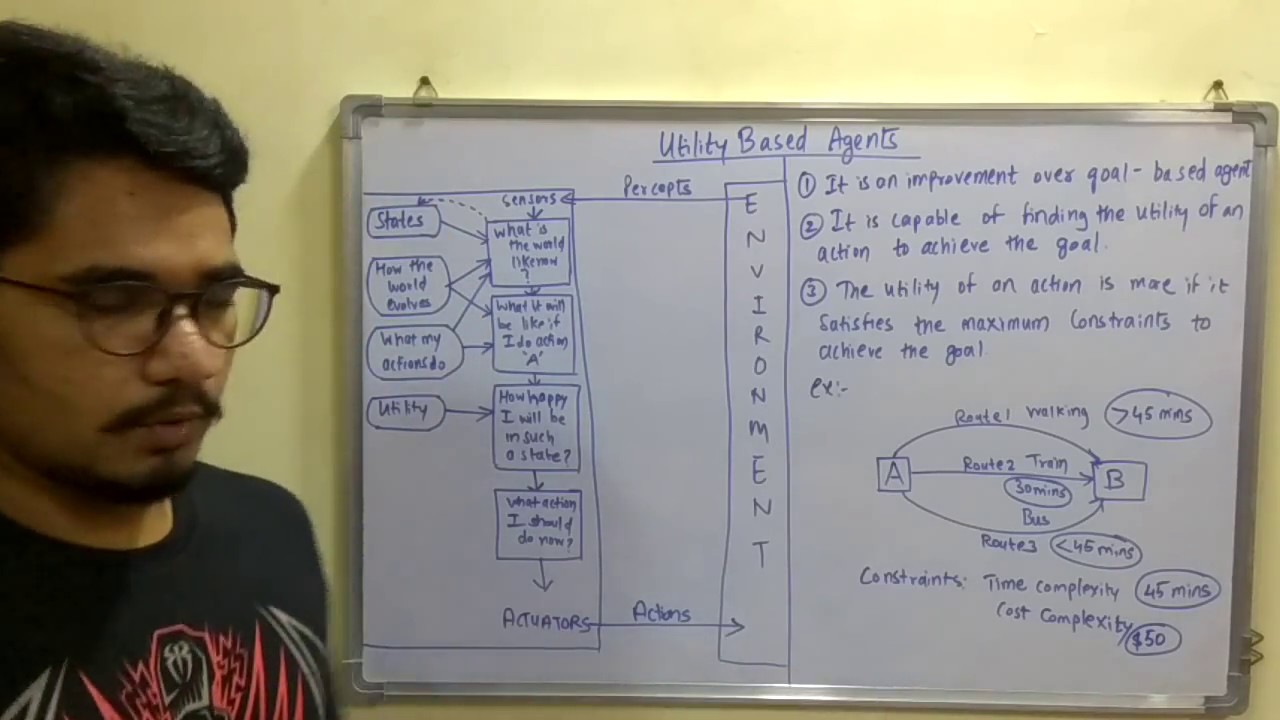 Utility Based Agents
Percepts
sensors
States
What is
the world
like now
?
How the
world
evolves
What it will
be like if
I do action
'A'
What my
actions do
Utility
How happy
I will be
in such
a state?
What action
I should
do now?
ACTUATORS
Actions
E
N
V
I
R
O
N
M
E
N
T
① It is an improvement over goal-based agent
② It is capable of finding the utility of an
action to achieve the goal.
③ The utility of an action is more if it
satisfies the maximum constraints to
achieve the goal.
ex:-
Route1 Walking >45 mins
A
Route2 Train
30mins
B
Bus
Route3 <45 mins
Constraints: Time complexity 45 mins
Cost Complexity $50